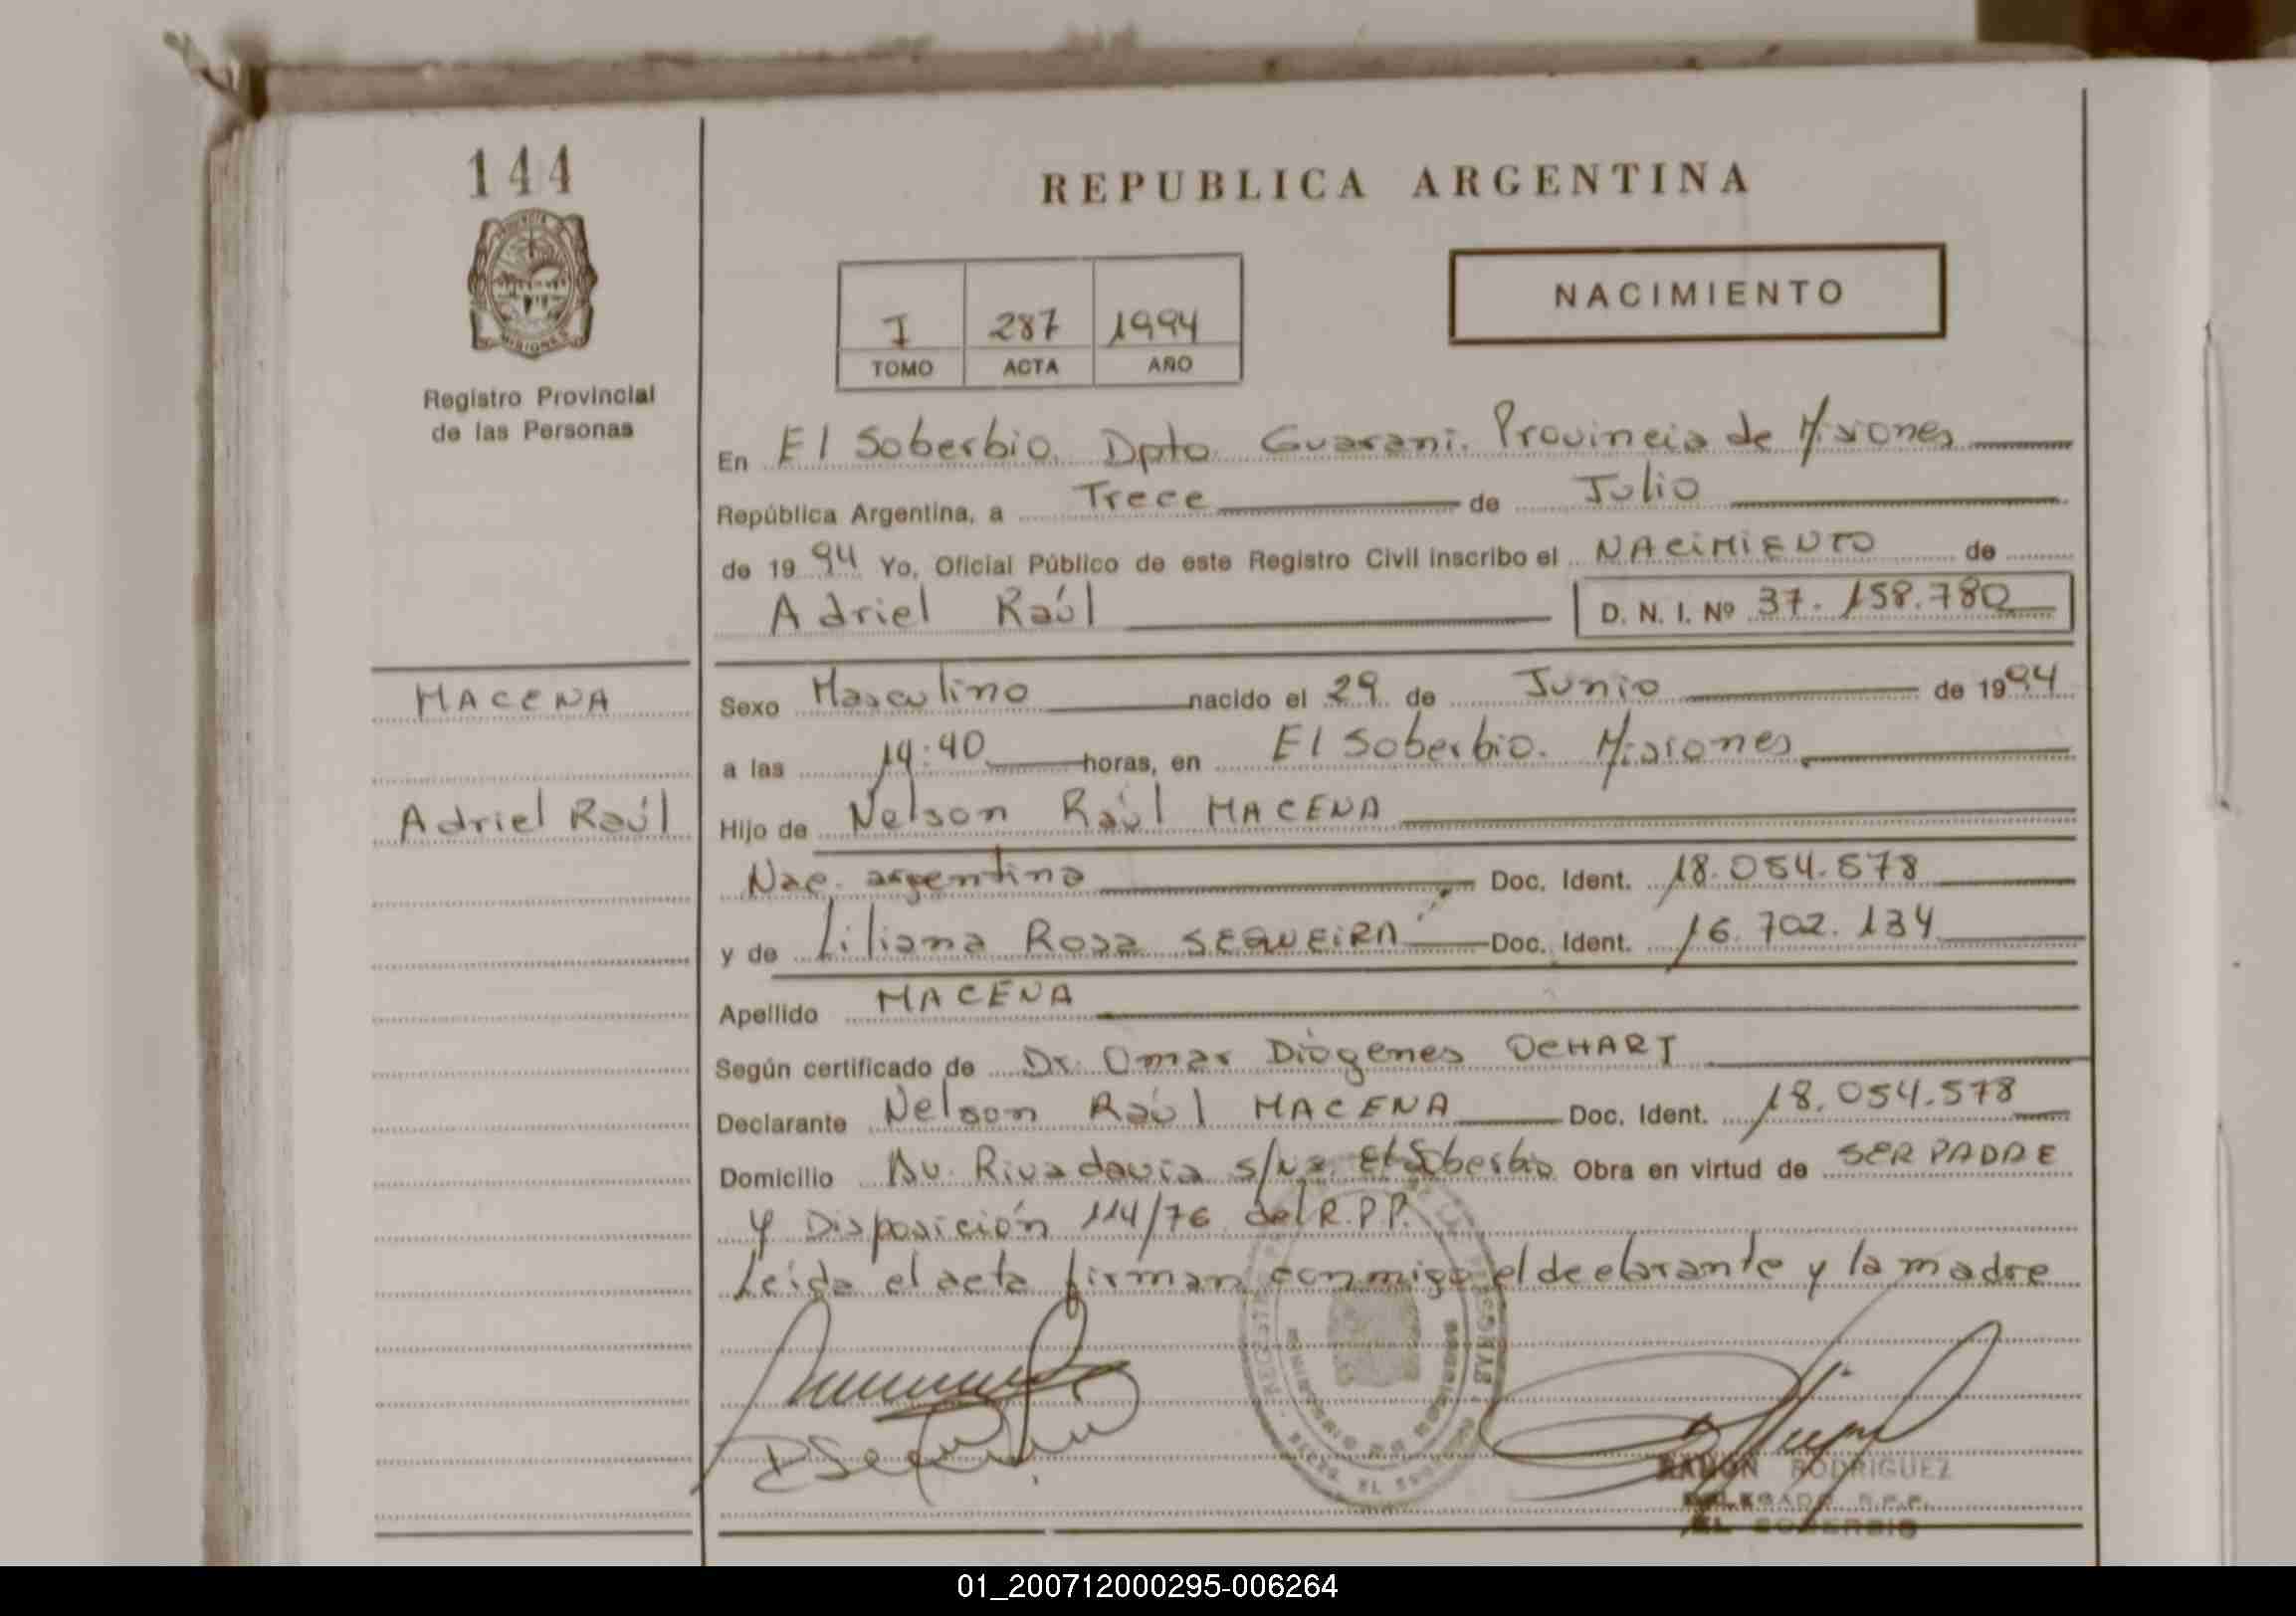 144
REPUBLICA ARGENTINA
NACIMIENTO
I 287 1994
TOMO ACTA AÑO
Registro Provincial
de las Personas
En El Soberbio. Dpto. Guarani. Provincia de Misiones
República Argentina, a Trece de Julio
de 1994 Yo, Oficial Público de este Registro Civil inscribo el NACIMIENTO de
Adriel Raúl D. N. I. Nº 37.158.780
MACENA
Sexo Masculino nacido el 29 de Junio de 1994
a las 14:40 horas, en El Soberbio. Misiones
Adriel Raúl
Hijo de Nelson Raúl MACENA
Nac. argentina Doc. Ident. 18.054.578
y de Liliana Rosa SEQUEIRA Doc. Ident. 16.702.134
Apellido MACENA
Según certificado de Dr. Omar Diógenes DEHART
Declarante Nelson Raúl MACENA Doc. Ident. 18.054.578
Domicilio Av. Rivadavia s/nº. El Soberbio Obra en virtud de SER PADRE
Y Disposición 114/76 del R.P.P.
Leida el acta firman conmigo el declarante y la madre
RAMON RODRIGUEZ
DELEGADO R.P.P.
EL SOBERBIO
01_200712000295-006264